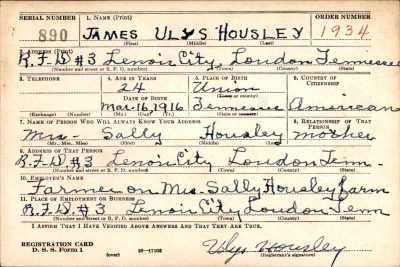 SERIAL NUMBER 1. NAME (Print) ORDER NUMBER
890 JAMES ULYS HOUSLEY 1934
(First) (Middle) (Last)
2. ADDRESS (Print)
R.F.D #3 Lenoir City, Loudon Tennessee
(Number and street or R. F. D. number) (Town) (County) (State)
3. TELEPHONE 4. AGE IN YEARS 5. PLACE OF BIRTH 6. COUNTRY OF CITIZENSHIP
24 Union
DATE OF BIRTH (Town or county)
Mar. 16, 1916 Tennessee American
(Exchange) (Number) (Mo.) (Day) (Yr.) (State or country)
7. NAME OF PERSON WHO WILL ALWAYS KNOW YOUR ADDRESS 8. RELATIONSHIP OF THAT PERSON
Mrs- Sally Housley mother
(Mr., Mrs., Miss) (First) (Middle) (Last)
9. ADDRESS OF THAT PERSON
R.F.D #3 Lenoir City Loudon Tenn.
(Number and street or R. F. D. number) (Town) (County) (State)
10. EMPLOYER'S NAME
Farmer on Mrs. Sally Housley farm
11. PLACE OF EMPLOYMENT OR BUSINESS
R.F.D #3 Lenoir City Loudon Tenn
(Number and street or R. F. D. number) (Town) (County) (State)
I AFFIRM THAT I HAVE VERIFIED ABOVE ANSWERS AND THAT THEY ARE TRUE.
REGISTRATION CARD
D. S. S. Form 1 (over) 16—17105 Ulys Housley
(Registrant's signature)